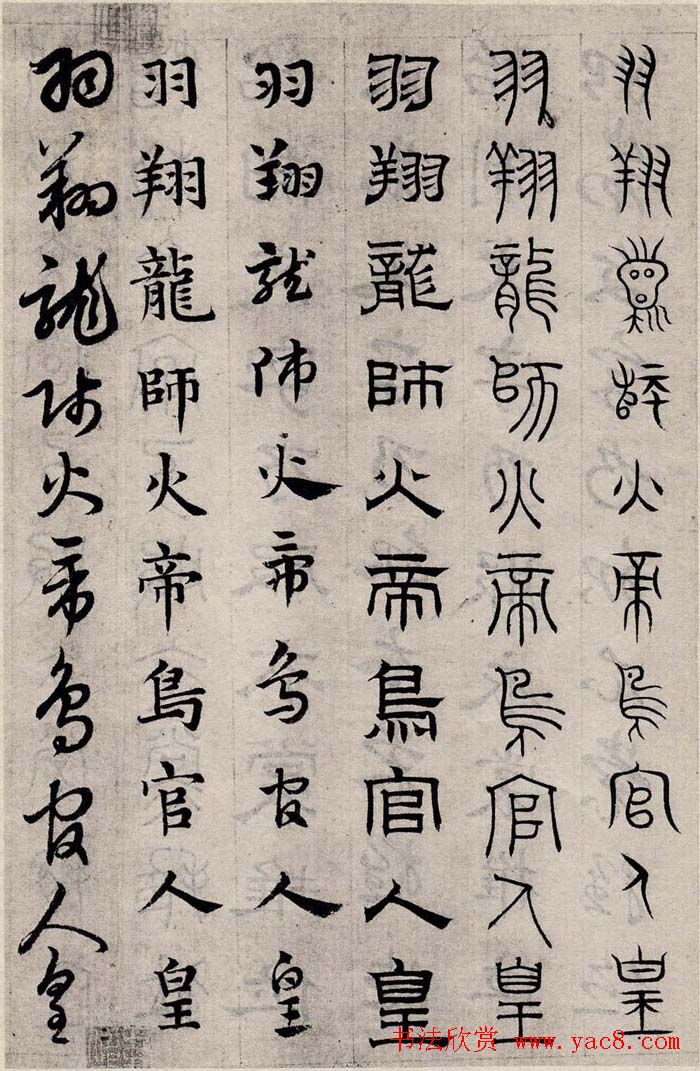 羽翔龍師火帝鳥官人皇
羽翔龍師火帝鳥官人皇
羽翔龍師火帝鳥官人皇
羽翔龍師火帝鳥官人皇
羽翔龍師火帝鳥官人皇
羽翔龍師火帝鳥官人皇
书法欣赏 www.yac8.com